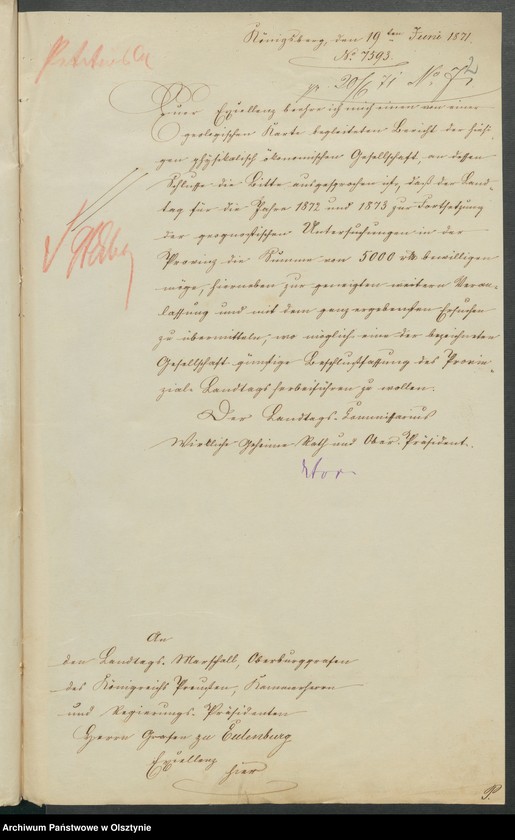 Königsberg, den 19ten Juni 1871.
No 7393.
pr. 20/6 71 No 7
Euer Exzellenz beehre ich mich einen von einer
geologischen Karte begleiteten Bericht der hiesi-
gen physikalisch ökonomischen Gesellschaft, an dessen
Schlusse die Bitte ausgesprochen ist, daß der Land-
tag für die Jahre 1872 und 1873 zur Fortsetzung
der geognostischen Untersuchungen in der
Provinz die Summe von 5000 rtl. bewilligen
möge, hierneben zur geneigten weitern Veran-
lassung und mit dem ganz ergebensten Ersuchen
zu übermitteln, wo möglich eine der bezeichneten
Gesellschaft günstige Beschlußfassung des Provin-
zial-Landtags herbeiführen zu wollen.
Der Landtags-Commissarius
Wirkliche Geheime Rath und Ober-Präsident.
An
den Landtags-Marschall, Oberburggrafen
des Königreichs Preußen, Kammerherrn
und Regierungs-Präsidenten
Herrn Grafen zu Eulenburg
Exzellenz
hier
P.
Archiwum Państwowe w Olsztynie